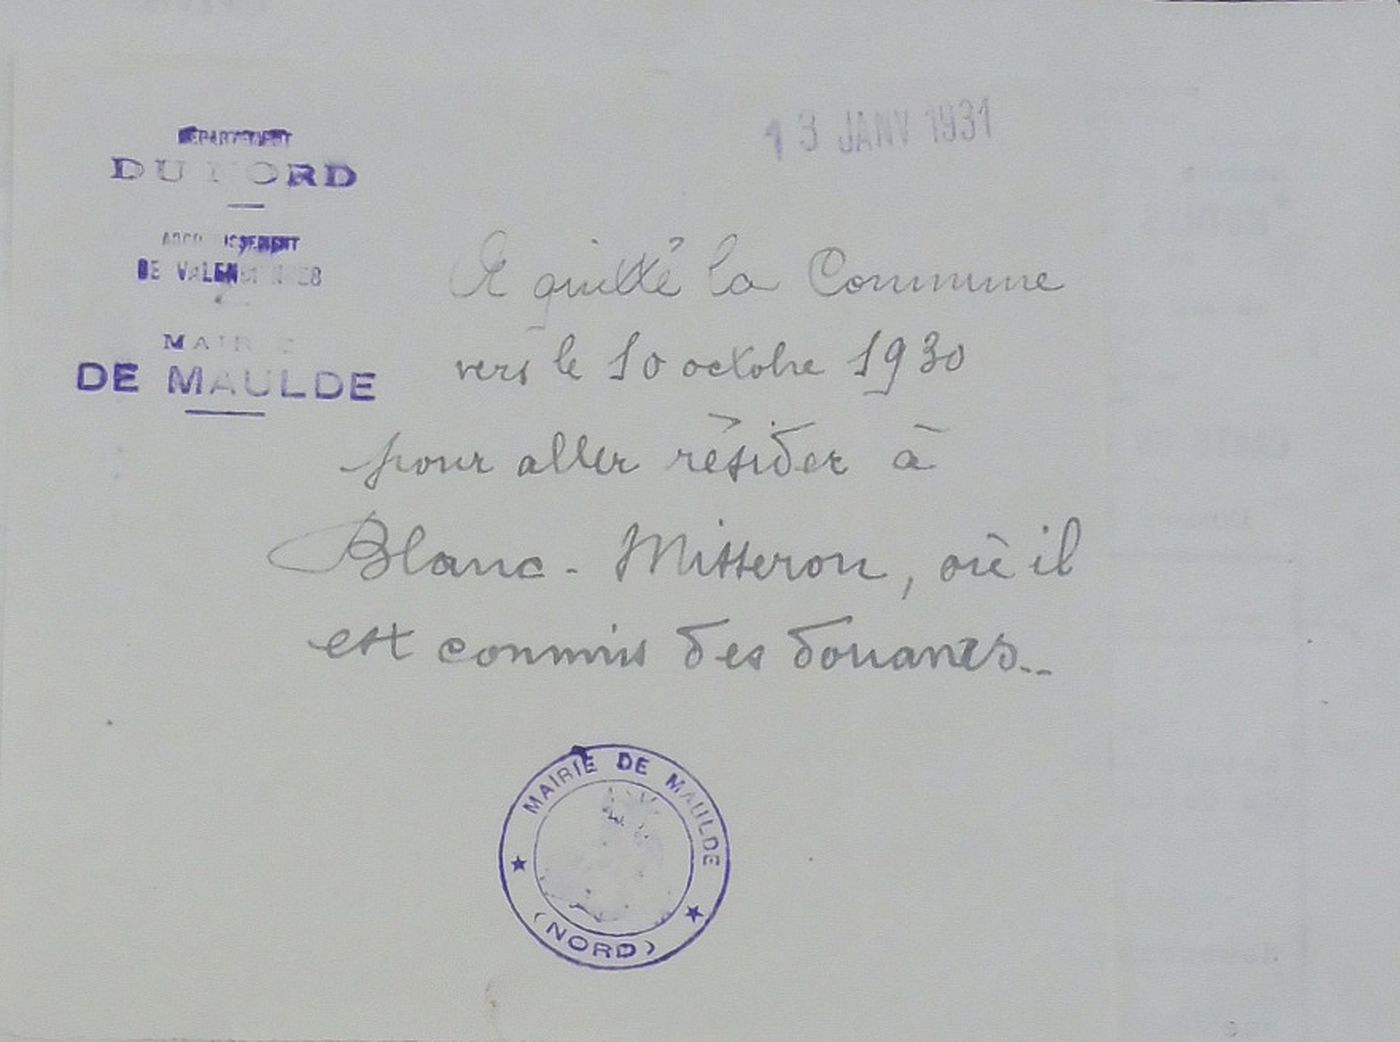 DÉPARTEMENT
DU NORD
ARRONDISSEMENT
DE VALENCIENNES
MAIRIE
DE MAULDE
13 JANV 1931
A quitté la Commune
vers le 10 octobre 1930
pour aller résider à
Blanc-Misseron, où il
est commis des douanes..
MAIRIE DE MAULDE
(NORD)